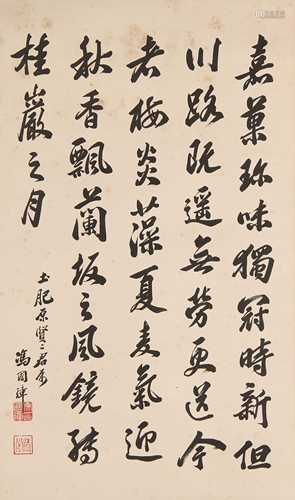 嘉菓珎味獨冠時新但
川路既遥無勞更送今
者梅炎藻夏麦氣迎
秋香飄蘭坂之風鏡轉
桂巖之月
土肥原賢二君属
馮國璋